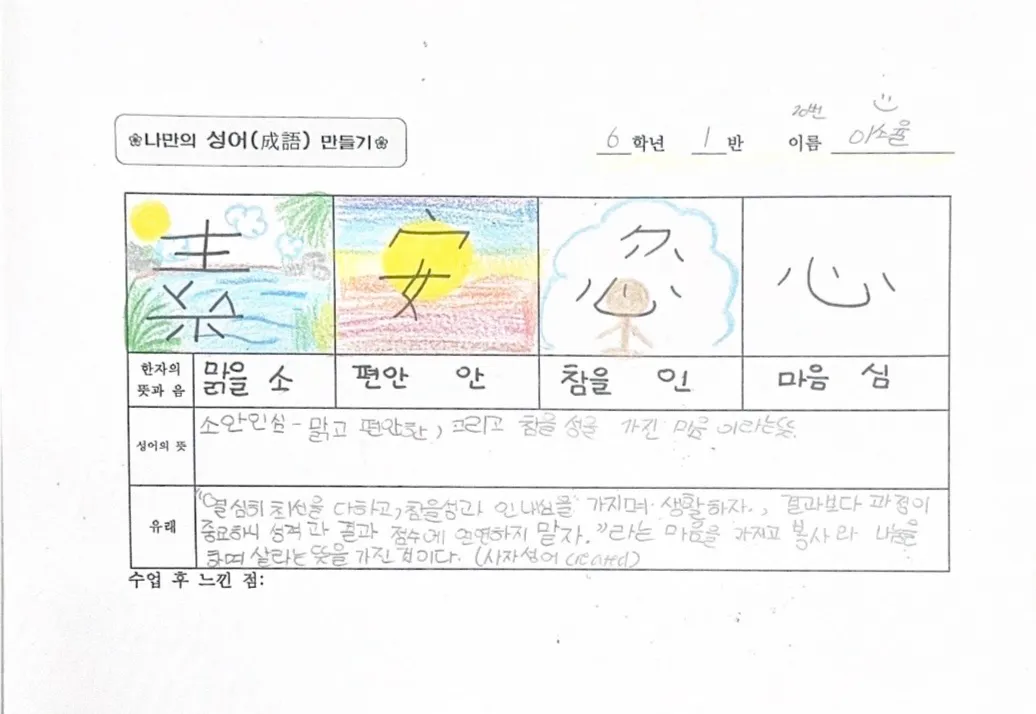 ❀나만의 성어(成語) 만들기❀
6 학년 1 반 20번 이름 이소율
素 安 忍 心
한자의 뜻과 음 맑을 소 편안 안 참을 인 마음 심
성어의 뜻 소안인심 - 맑고 편안한, 그리고 참을성을 가진 마음이라는 뜻.
"열심히 최선을 다하고, 참을성과 인내심을 가지며 생활하자., 결과보다 과정이
유래 중요하니 성격과 결과 점수에 연연하지 말자."라는 마음을 가지고 봉사와 나눔을
하며 살라는 뜻을 가진 것이다. (사자성어 created)
수업 후 느낀 점: